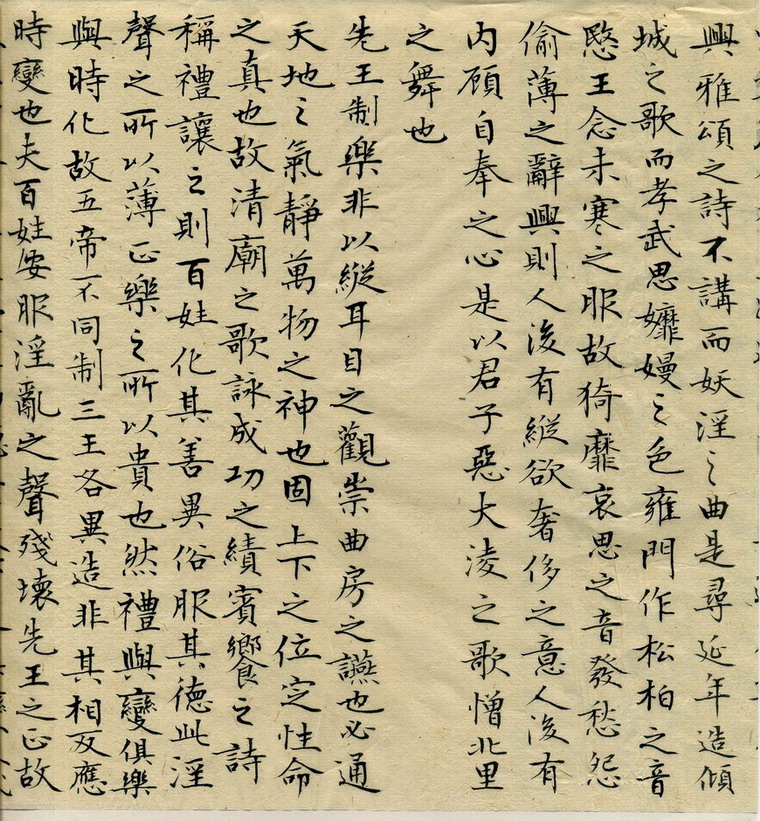 興雅頌之詩不講而妖淫之曲是尋延年造傾
城之歌而孝武思嬺嫚之色雍門作松柏之音
愍王念未寒之服故猗靡哀思之音發愁怨
偷薄之辭興則人後有縱欲奢侈之意人後有
内顧自奉之心是以君子惡大淩之歌憎北里
之舞也
先王制樂非以縱耳目之觀崇曲房之嬿也必通
天地之氣靜萬物之神也固上下之位定性命
之真也故清廟之歌詠成功之績賓饗之詩
稱禮讓之則百姓化其善異俗服其德此淫
聲之所以薄正樂之所以貴也然禮與變俱樂
與時化故五帝不同制三王各異造非其相反應
時變也夫百姓安服淫亂之聲殘壞先王之正故